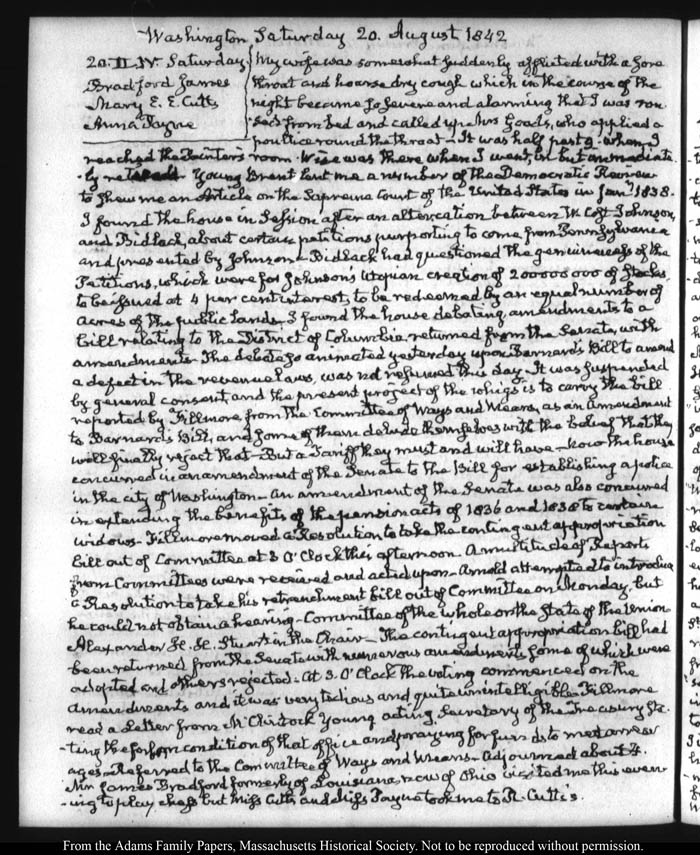 Washington Saturday 20. August 1842
20. II. IV. Saturday
Bradford James
Mary E. E. Cutts
Anna Payne
My wife was somewhat suddenly afflicted with a sore
throat and hoarse dry cough which in the course of the
night became so severe and alarming that I was rou
sed from bed and called up Mrs Goods, who applied a
poultice round the throat – It was half past 9. when I
reached the Painter's room. Wise was there when I went in but immediate
-ly retired. Young Brent lent me a number of the Democratic Review
to shew me an Article on the Supreme Court of the United States in Jany 1838.
I found the house in Session after an altercation between W. Cost Johnson,
and Bidlack, about certain petitions purporting to come from Pennsylvania
and presented by Johnson – Bidlack had questioned the genuineness of the
Petitions, which were for Johnson's Utopian creation of 200 000 000 of Stocks
to be issued at 4 per cent interest, to be redeemed by an equal number of
acres of the public Lands. I found the house debating amendments to a
bill relating to the District of Columbia returned from the Senate, with
amendments. The debate so animated yesterday upon Barnard's Bill to amend
a defect in the revenue laws, was not resumed this day. It was suspended
by general consent, and the present project of the whigs is to carry the bill
reported by Fillmore, from the Committee of Ways and Means, as an Amendment
to Barnard's Bill, and some of them delude themselves with the belief that they
will finally reject that – But a Tariff they must and will have – now the house
concurred in an amendment of the Senate to the bill for establishing a police
in the city of Washington – An amendment of the Senate was also concurred
in extending the benefits of the pension acts of 1836 and 1838 to certain
widows. Fillmore moved a Resolution to take the contingent appropriation
bill out of Committee at 3 O'Clock this afternoon. A multitude of Reports
from Committees were received and acted upon – Arnold attempted to introduce
a Resolution to take his retrenchment bill out of Committee on Monday, but
he could not obtain a hearing – Committee of the whole on the State of the Union
Alexander H. H. Stuart in the Chair – The contingent appropriation bill had
been returned from the Senate with numerous amendments some of which were
adopted and others rejected – At 3. O'Clock the voting commenced on the
amendments and it was very tedious and quite unintelligible. Fillmore
read a Letter from McClintock Young acting Secretary of the Treasury Sta
-ting the forlorn condition of that office and praying for funds to meet arrear
ages – Referred to the Committee of Ways and Means – Adjourned about 4.
Mr James Bradford formerly of Louisiana, now of Ohio visited me this even-
-ing to play chess but Miss Cutts and Miss Payne took me to R. Cutts's.
From the Adams Family Papers, Massachusetts Historical Society. Not to be reproduced without permission.